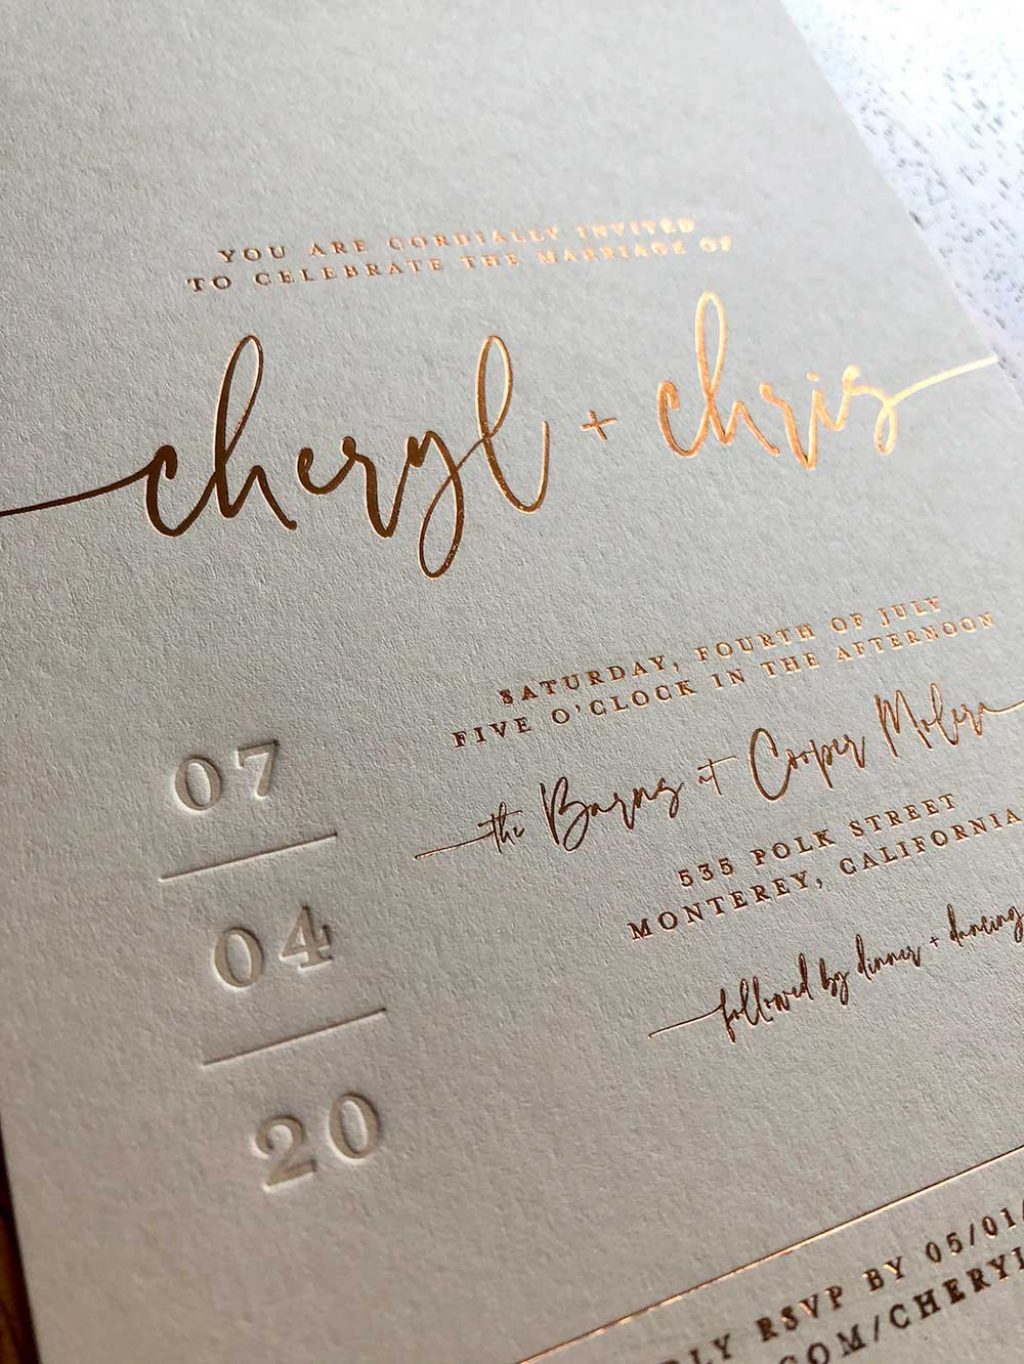 YOU ARE CORDIALLY INVITED
TO CELEBRATE THE MARRIAGE OF
cheryl + chris
SATURDAY, FOURTH OF JULY
FIVE O'CLOCK IN THE AFTERNOON
the Barns at Cooper Molera
535 POLK STREET
MONTEREY, CALIFORNIA
followed by dinner + dancing
07
04
20
RSVP BY 05/01/
.COM/CHERYL